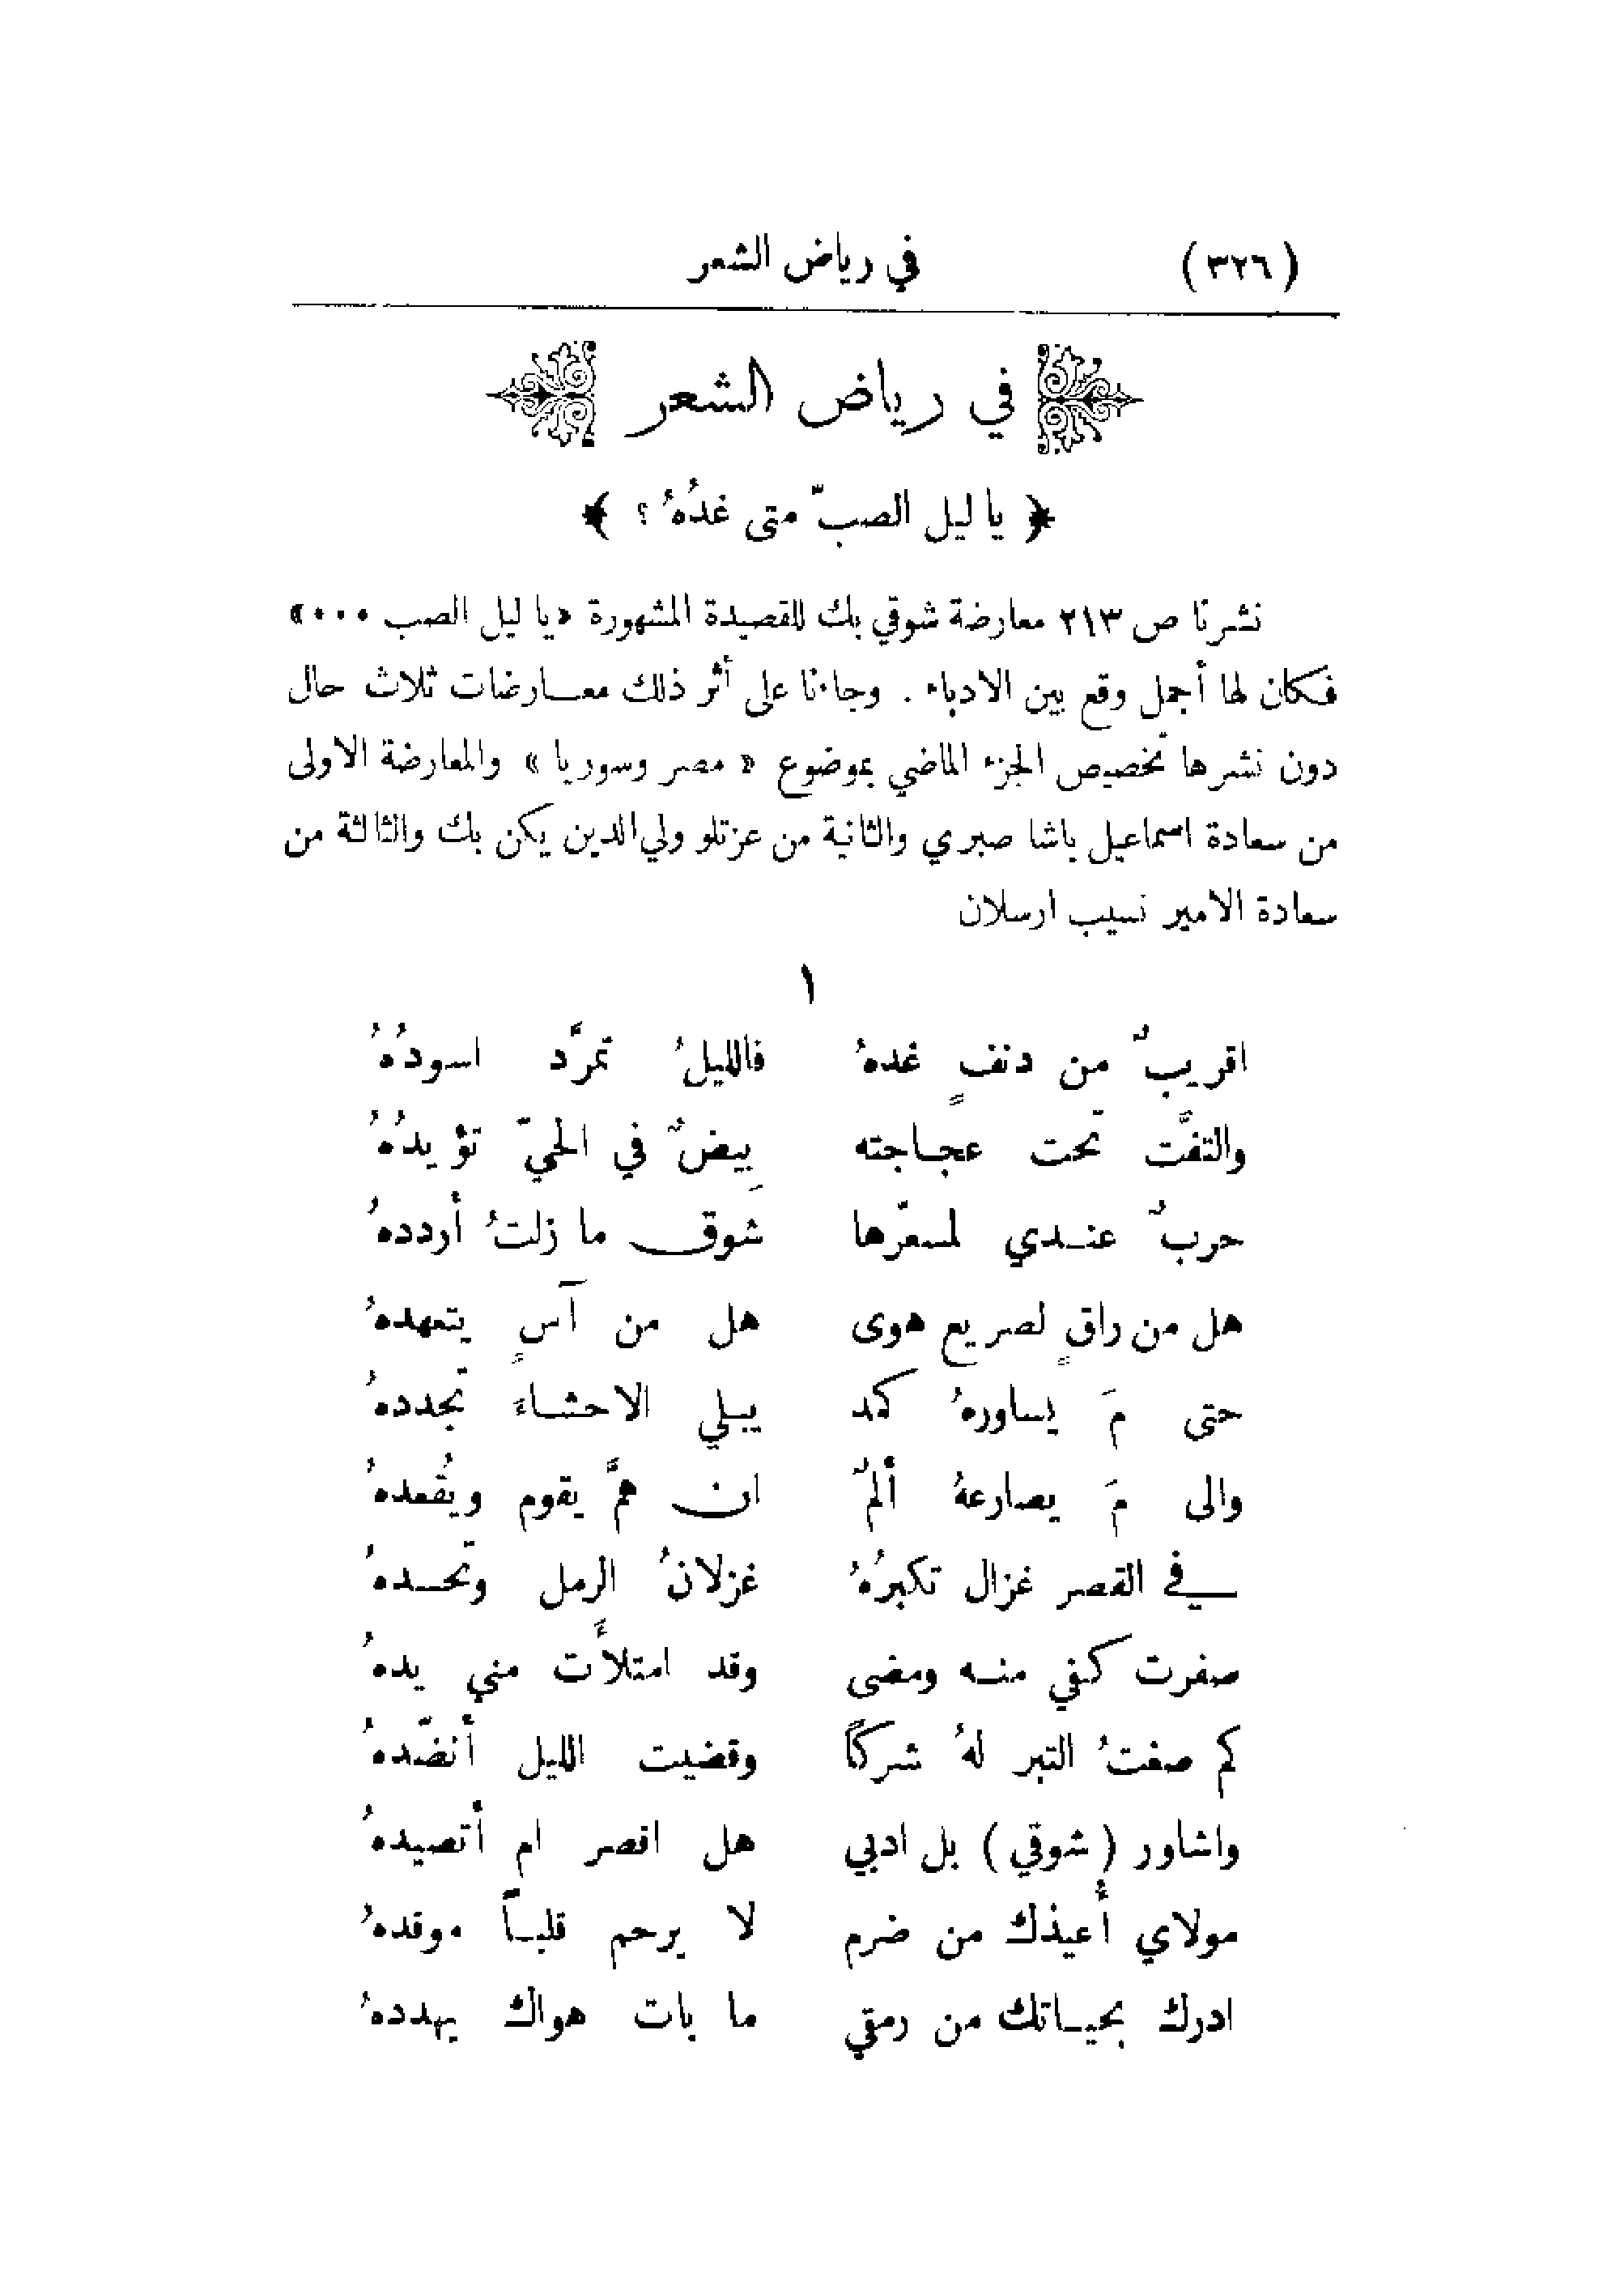 (٣٢٦) في رياض الشعر
في رياض الشعر
﴿ يا ليل الصبّ متى غدُهُ ؟ ﴾
نشرنا ص ٢١٣ معارضة شوقي بك للقصيدة المشهورة «يا ليل الصب ٠٠٠»
فكان لها أجمل وقع بين الادباء . وجاءنا على أثر ذلك معارضات ثلاث حال
دون نشرها تخصيص الجزء الماضي بموضوع « مصر وسوريا » والمعارضة الاولى
من سعادة اسماعيل باشا صبري والثانية من عزتلو ولي الدين يكن بك والثالثة من
سعادة الامير نسيب ارسلان
١
اقريبٌ من دنفٍ غدهُ فالليلُ تمرَّد اسودُهُ
والتفَّت تحت عجاجته بِيضٌ في الحيّ تؤيدُهُ
حربٌ عندي لمسعّرها شوق ما زلتُ أرددهُ
هل من راقٍ لصريع هوى هل من آسٍ يتعهدهُ
حتى مَ يساورهُ كمد يبلي الاحشاءَ تجددهُ
والى مَ يصارعهُ ألمٌ ان همَّ يقوم ويُقعدهُ
في القصر غزال تكبرُهُ غزلانُ الرمل وتحسدهُ
صفرت كفي منه ومضى وقد امتلأت مني يدهُ
كم صغتُ التبر لهُ شركاً وقضيت الليل أنضّدهُ
واشاور (شوقي) بل ادبي هل اقصر ام أتصيدهُ
مولاي أُعيذك من ضرم لا يرحم قلباً موقدهُ
ادرك بحياتك من رمقي ما بات هواك يهددهُ